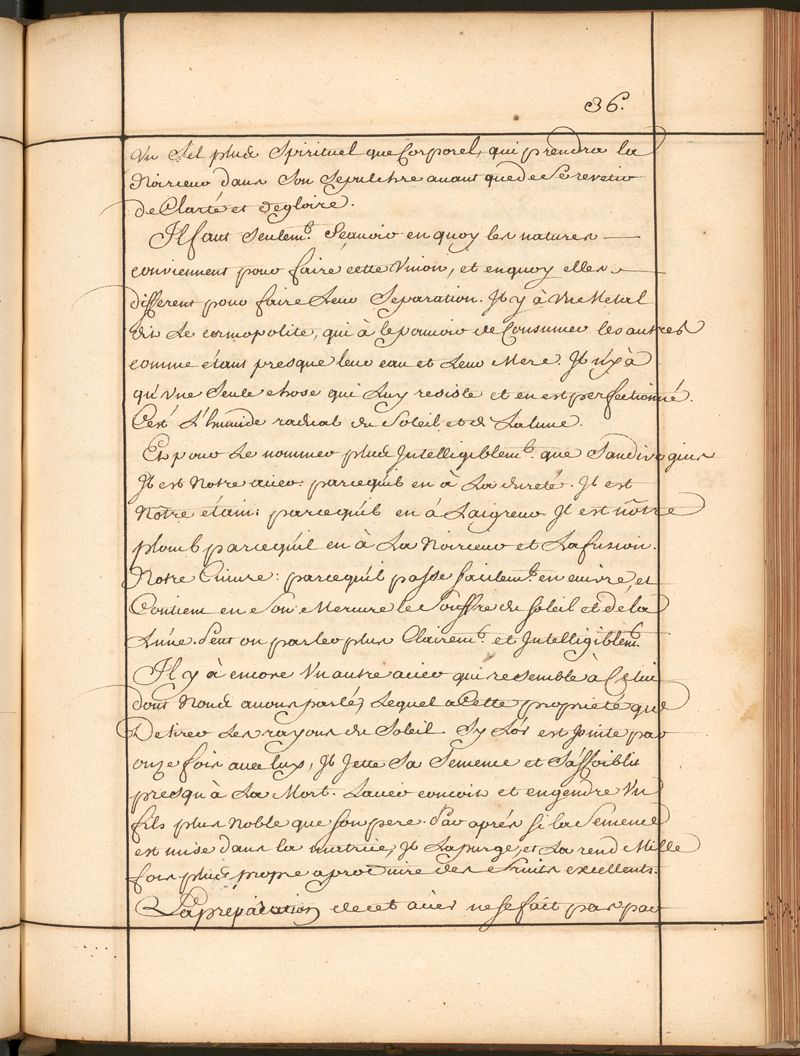 36.
Un Sel plus Spirituel que Corporel, qui prendra la
Noirceur dans Son Sepulchre auant que de Se revetir
de Clarté et de gloire.
Il faut Seulemt. Sçauoir en quoy les natures
conviennent pour faire cette Vnion, et en quoy elles
different pour faire Leur Separation. Il y à Vn Metal
dit Le cosmopolite, qui à le pouuoir de Consumer les autres
comme étant presque leur eau et Leur Mere. Il n'y à
qu'vne Seule chose qui Luy resiste et en est perfectionné.
C'est L'humide radical du Soleil et de La lune.
Et pour Le nommer plus Intelligiblemt. que Sandivogius
Il est Notre acier: parcequ'il en à La dureté. Il est
Notre étain: parcequ'il en á L'aigreur. Il est nôtre
plomb parcequ'il en à La Noirceur et La fusion.
Notre Cuivre: parcequ'il passe facilemt. en cuivre, et
Contient en Son Mercure le Souffre du Soleil et de la
Lune. Peut on parler plus Clairemt. et Intelligiblemt.
Il y à encore Vn autre acier qui ressemble à Celui
dont Nous auons parlé, Lequel a Cette propriété que
De tirer Les rayons du Soleil. Sy L'or est Jointe par
onze fois auec luy, Il Jette Sa Semence et S'affoiblit
presqu'à La Mort. L'acier concoit et engendre Vn
fils plus Noble que son pere. Par aprés si la Semence
est mise dans la matrice, Il La purge, et La rend Mille
fois plus propre a produire des Fruits excellents.
La préparation de cet acier ne se fait pas par